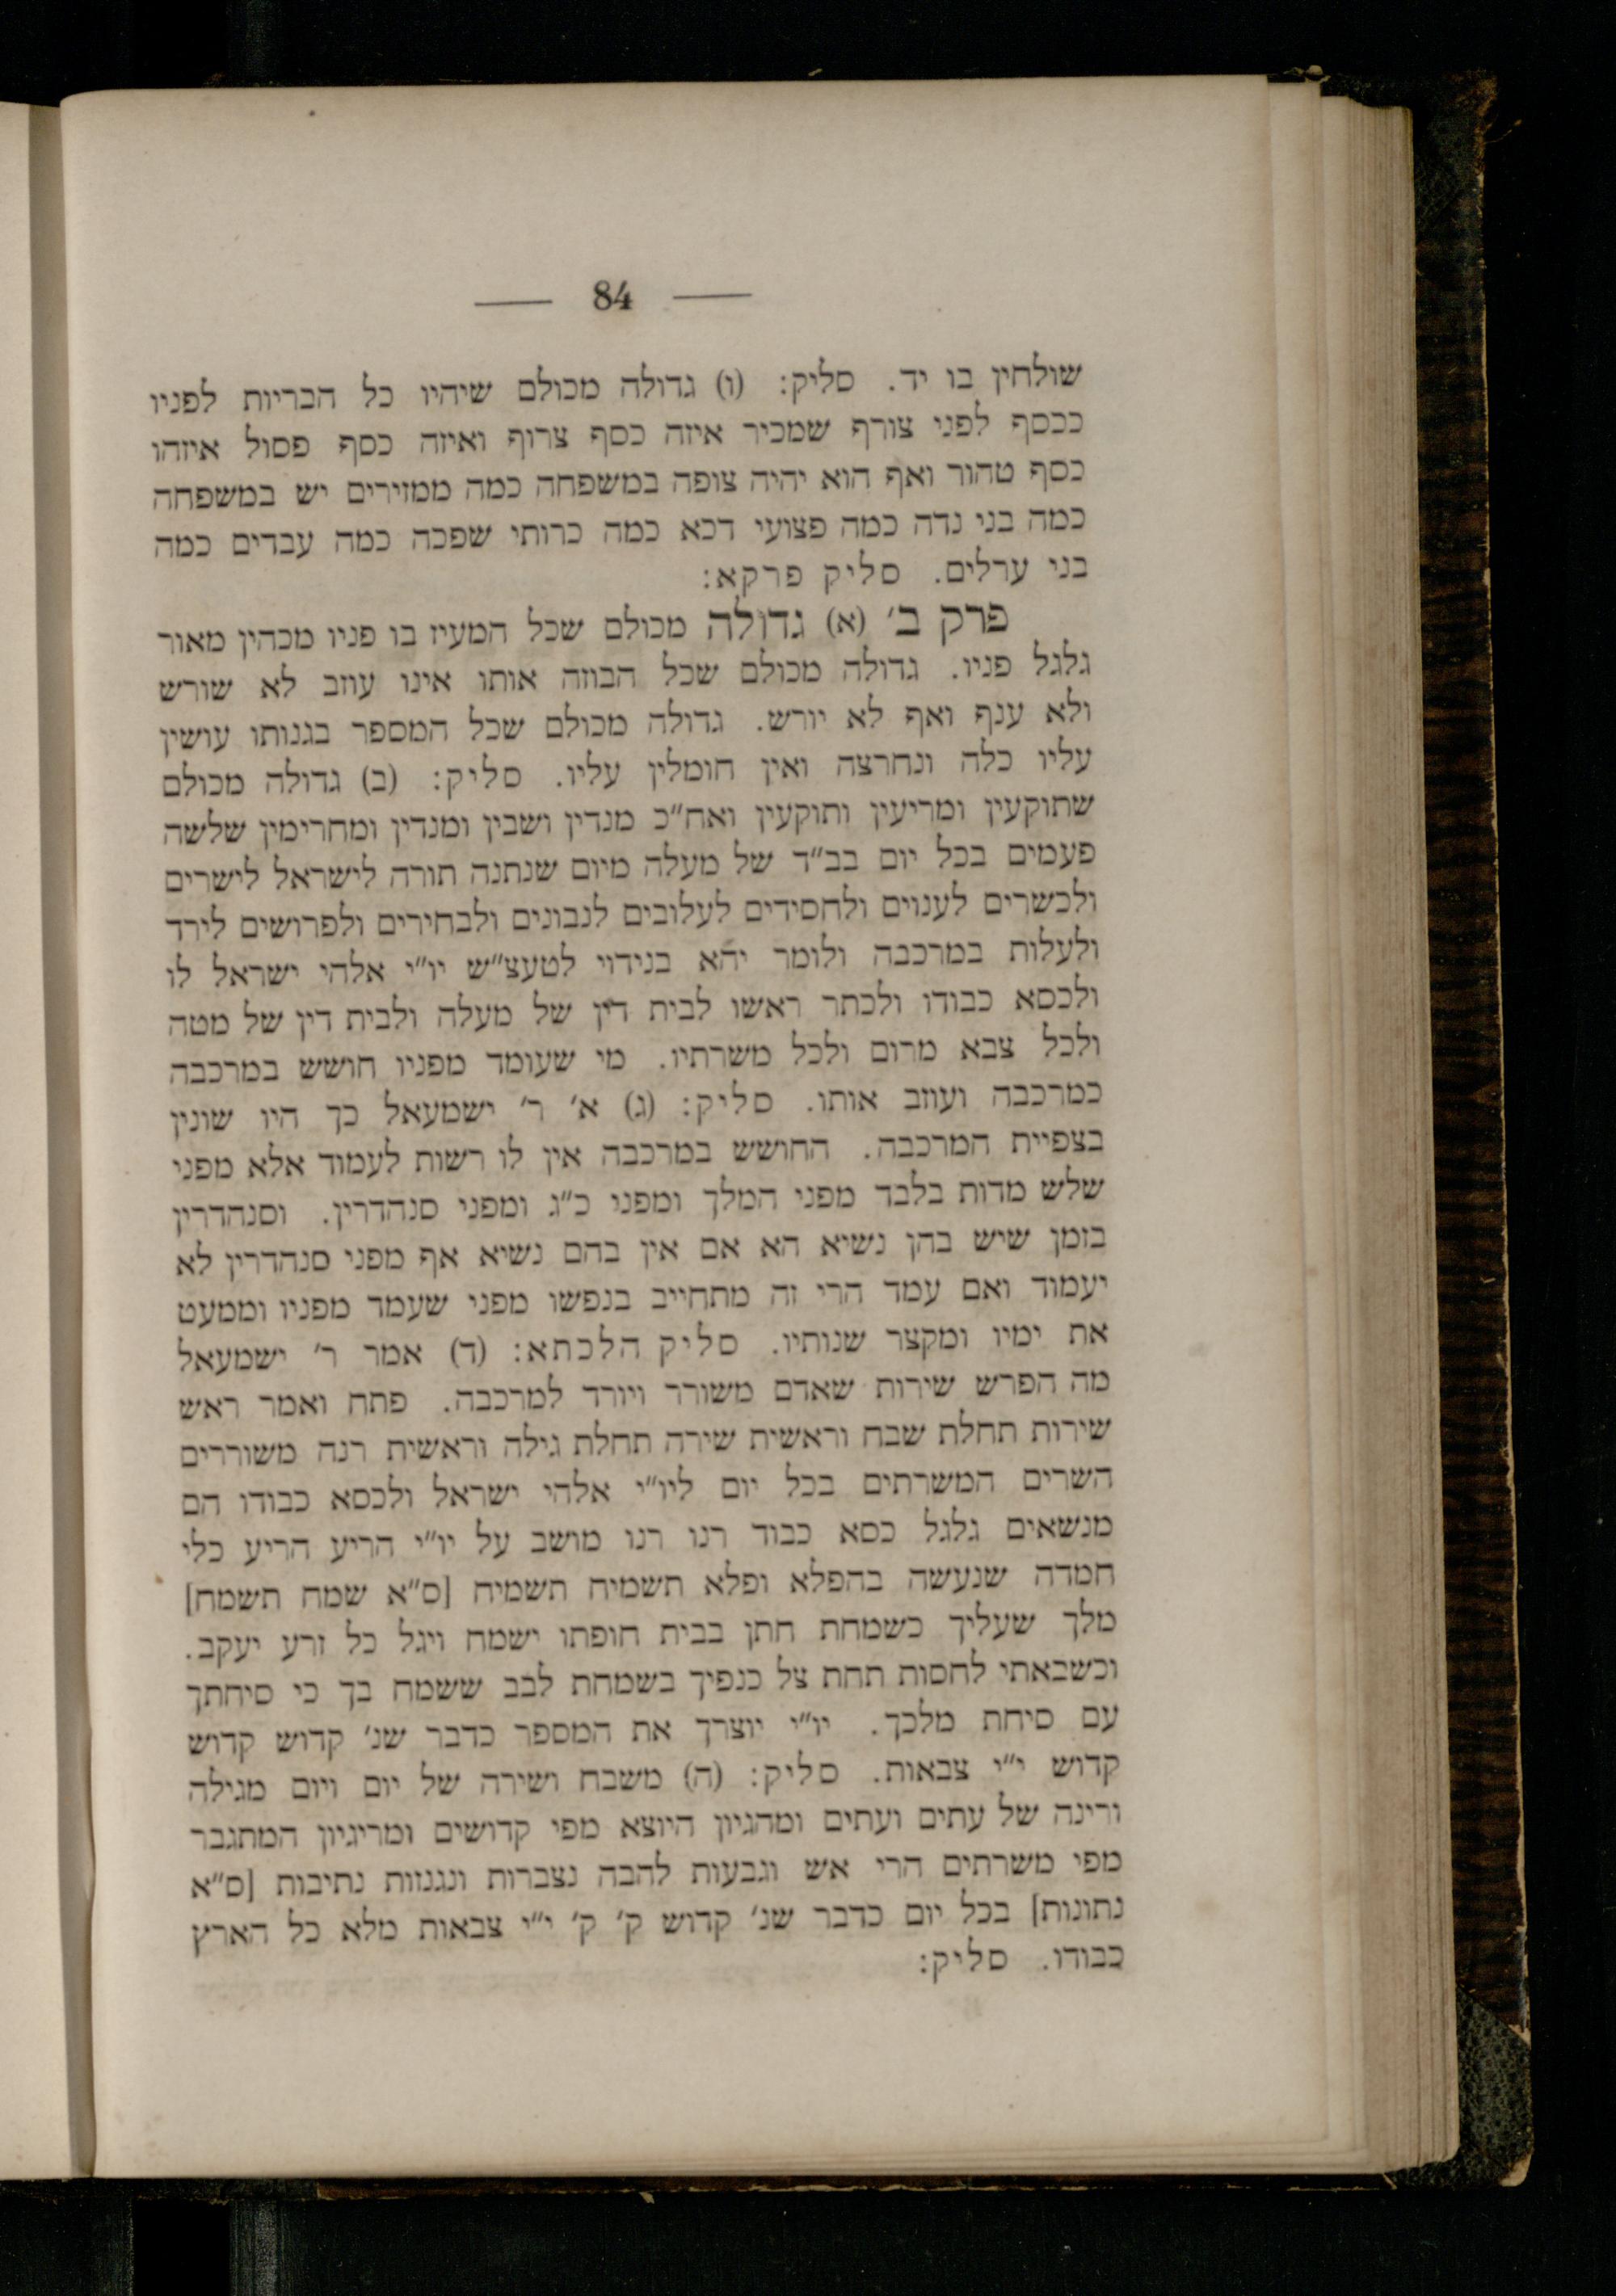 — 84 —
שולחין בו יד. סליק: (ו) גדולה מכולם שיהיו כל הבריות לפניו
ככסף לפני צורף שמכיר איזה כסף צרוף ואיזה כסף פסול איזהו
כסף טהור ואף הוא יהיה צופה במשפחה כמה ממזירים יש במשפחה
כמה בני נדה כמה פצועי דכא כמה כרותי שפכה כמה עבדים כמה
בני ערלים. סליק פרקא:
פרק ב׳ (א) גדולה מכולם שכל המעיז בו פניו מכהין מאור
גלגל פניו. גדולה מכולם שכל הבוזה אותו אינו עוזב לא שורש
ולא ענף ואף לא יורש. גדולה מכולם שכל המספר בגנותו עושין
עליו כלה ונחרצה ואין חומלין עליו. סליק: (ב) גדולה מכולם
שתוקעין ומריעין ותוקעין ואח״כ מנדין ושבין ומנדין ומחרימין שלשה
פעמים בכל יום בב״ד של מעלה מיום שנתנה תורה לישראל לישרים
ולכשרים לענוים ולחסידים לעלובים לנבונים ולבחירים ולפרושים לירד
ולעלות במרכבה ולומר יהא בנידוי לטעצ״ש יו״י אלהי ישראל לו
ולכסא כבודו ולכתר ראשו לבית דין של מעלה ולבית דין של מטה
ולכל צבא מרום ולכל משרתיו. מי שעומד מפניו חושש במרכבה
כמרכבה ועוזב אותו. סליק: (ג) א׳ ר׳ ישמעאל כך היו שונין
בצפיית המרכבה. החושש במרכבה אין לו רשות לעמוד אלא מפני
שלש מדות בלבד מפני המלך ומפני כ״ג ומפני סנהדרין. וסנהדרין
בזמן שיש בהן נשיא הא אם אין בהם נשיא אף מפני סנהדרין לא
יעמוד ואם עמד הרי זה מתחייב בנפשו מפני שעמד מפניו וממעט
את ימיו ומקצר שנותיו. סליק הלכתא: (ד) אמר ר׳ ישמעאל
מה הפרש שירות שאדם משורר ויורד למרכבה. פתח ואמר ראש
שירות תחלת שבח וראשית שירה תחלת גילה וראשית רנה משוררים
השרים המשרתים בכל יום ליו״י אלהי ישראל ולכסא כבודו הם
מנשאים גלגל כסא כבוד רנו רנו מושב על יו״י הריע הריע כלי
חמדה שנעשה בהפלא ופלא תשמיח תשמיח [ס״א שמח תשמח]
מלך שעליך כשמחת חתן בבית חופתו ישמח ויגל כל זרע יעקב.
וכשבאתי לחסות תחת צל כנפיך בשמחת לבב ששמח בך כי סיחתך
עם סיחת מלכך. יו״י יוצרך את המספר כדבר שנ׳ קדוש קדוש
קדוש י״י צבאות. סליק: (ה) משבח ושירה של יום ויום מגילה
ורינה של עתים ועתים ומהגיון היוצא מפי קדושים ומריגיון המתגבר
מפי משרתים הרי אש וגבעות להבה נצברות ונגנזות נתיבות [ס״א
נתונות] בכל יום כדבר שנ׳ קדוש ק׳ ק׳ י״י צבאות מלא כל הארץ
כבודו. סליק: